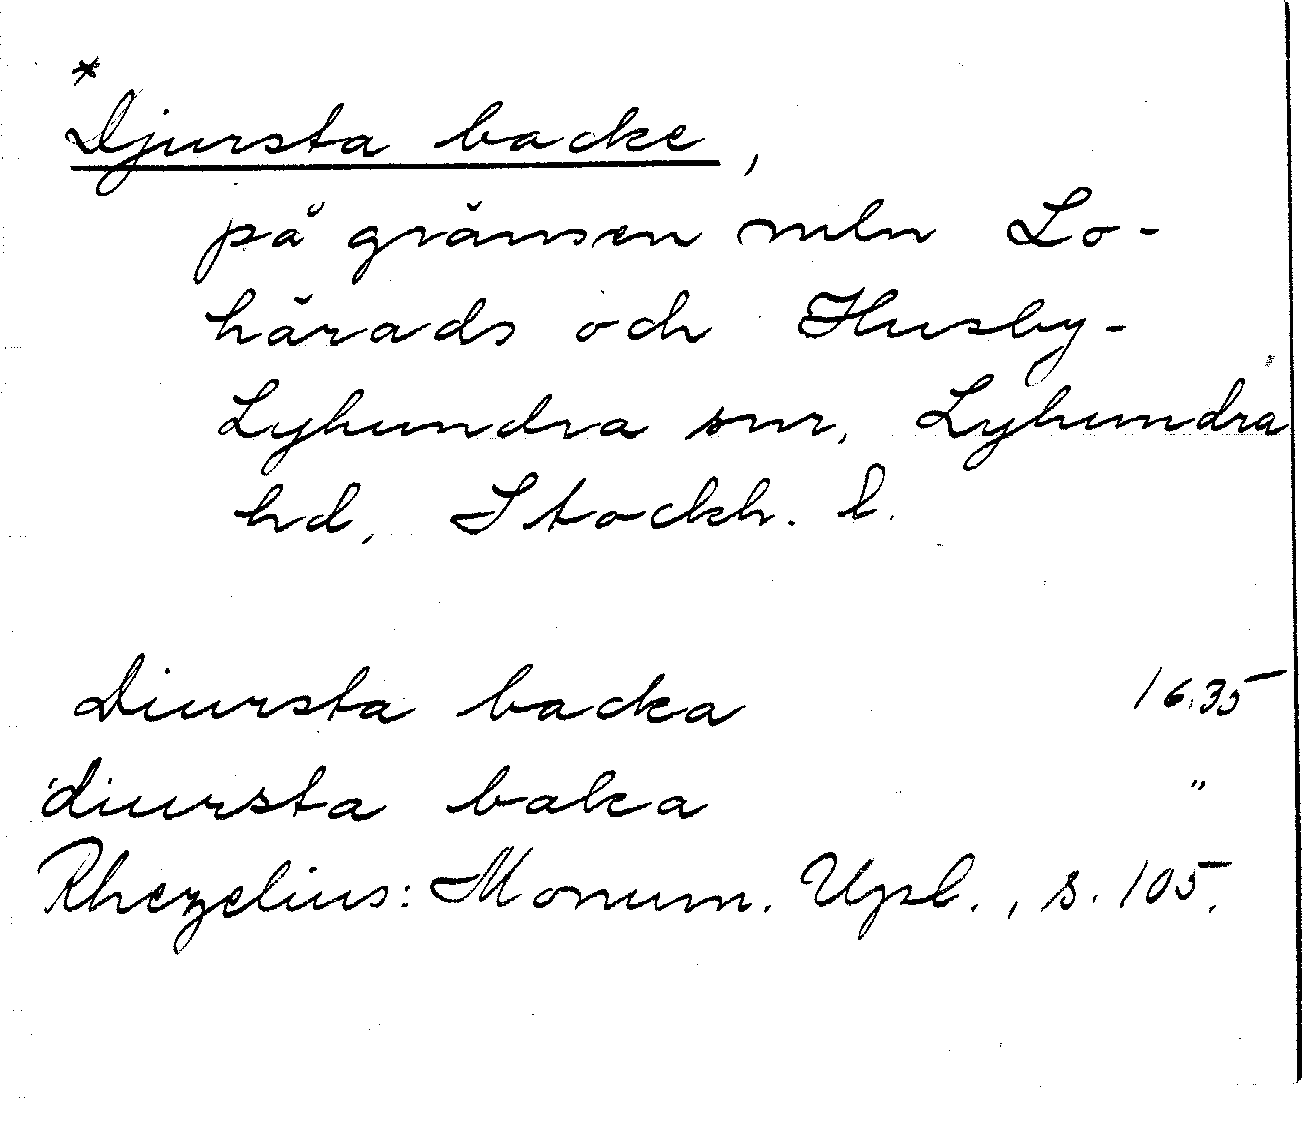 *
Djursta backe,
på gränsen mln Lo-
härads och Husby-
Lyhundra snr, Lyhundra
hd, Stockh. l.
Diursta backa 1635
diursta baka "
Rhezelius: Monum. Upl., s. 105.